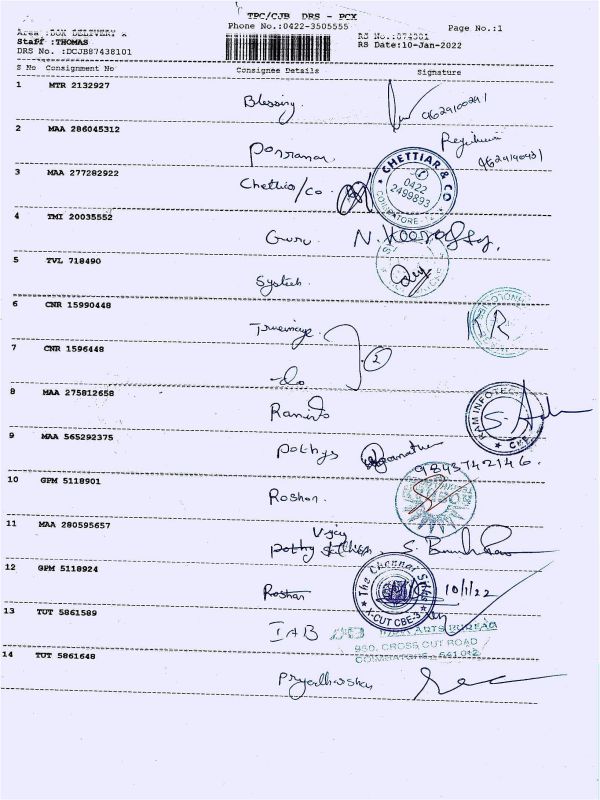 TPC/CJB DRS - PCX
Phone No.:0422-3505555
Page No.:1
Area :BOX DELIVERY
Staff :THOMAS
DRS No. :DCJB87438101
RS No.:874381
RS Date:10-Jan-2022
S No Consignment No Consignee Details Signature
1 MTR 2132927 Blessing
2 MAA 286045312
3 MAA 277282922 Chettiar/Co.
CHETTIAR & CO
0422
2499893
COIMBATORE
4 TMI 20035552 Guru
5 TVL 718490
6 CNR 15990448 Trueimage
2
7 CNR 1596448 do
8 MAA 275812658
RAM INFOTEC
CBE
9 MAA 565292375 Pothys
9843742146.
10 GPM 5118901 Roshan
11 MAA 280595657 Vijay
12 GPM 5118924 Roshan
The Chennai Silks
X-CUT CBE-3
10/1/22
13 TUT 5861589 IAB
ARTS BUREAU
980, CROSS CUT ROAD
COIMBATORE - 641 012
14 TUT 5861648 Priyadharshan